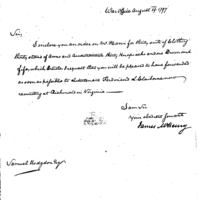 War Office August 29 1797
Sir,
I enclose you an order on Mr Harris for Thirty suits of Clothing
Thirty stands of Arms and Accoutrements Thirty Knapsacks and one Drum and
fife, which Articles I request that you will be pleased to have forwarded
as soon as possible to Lieutenant Ferdinand L Claiborne on
recruiting at Richmond in Virginia
I am Sir
Your obedient Servant
James McHenry
Samuel Hodgdon Esqr